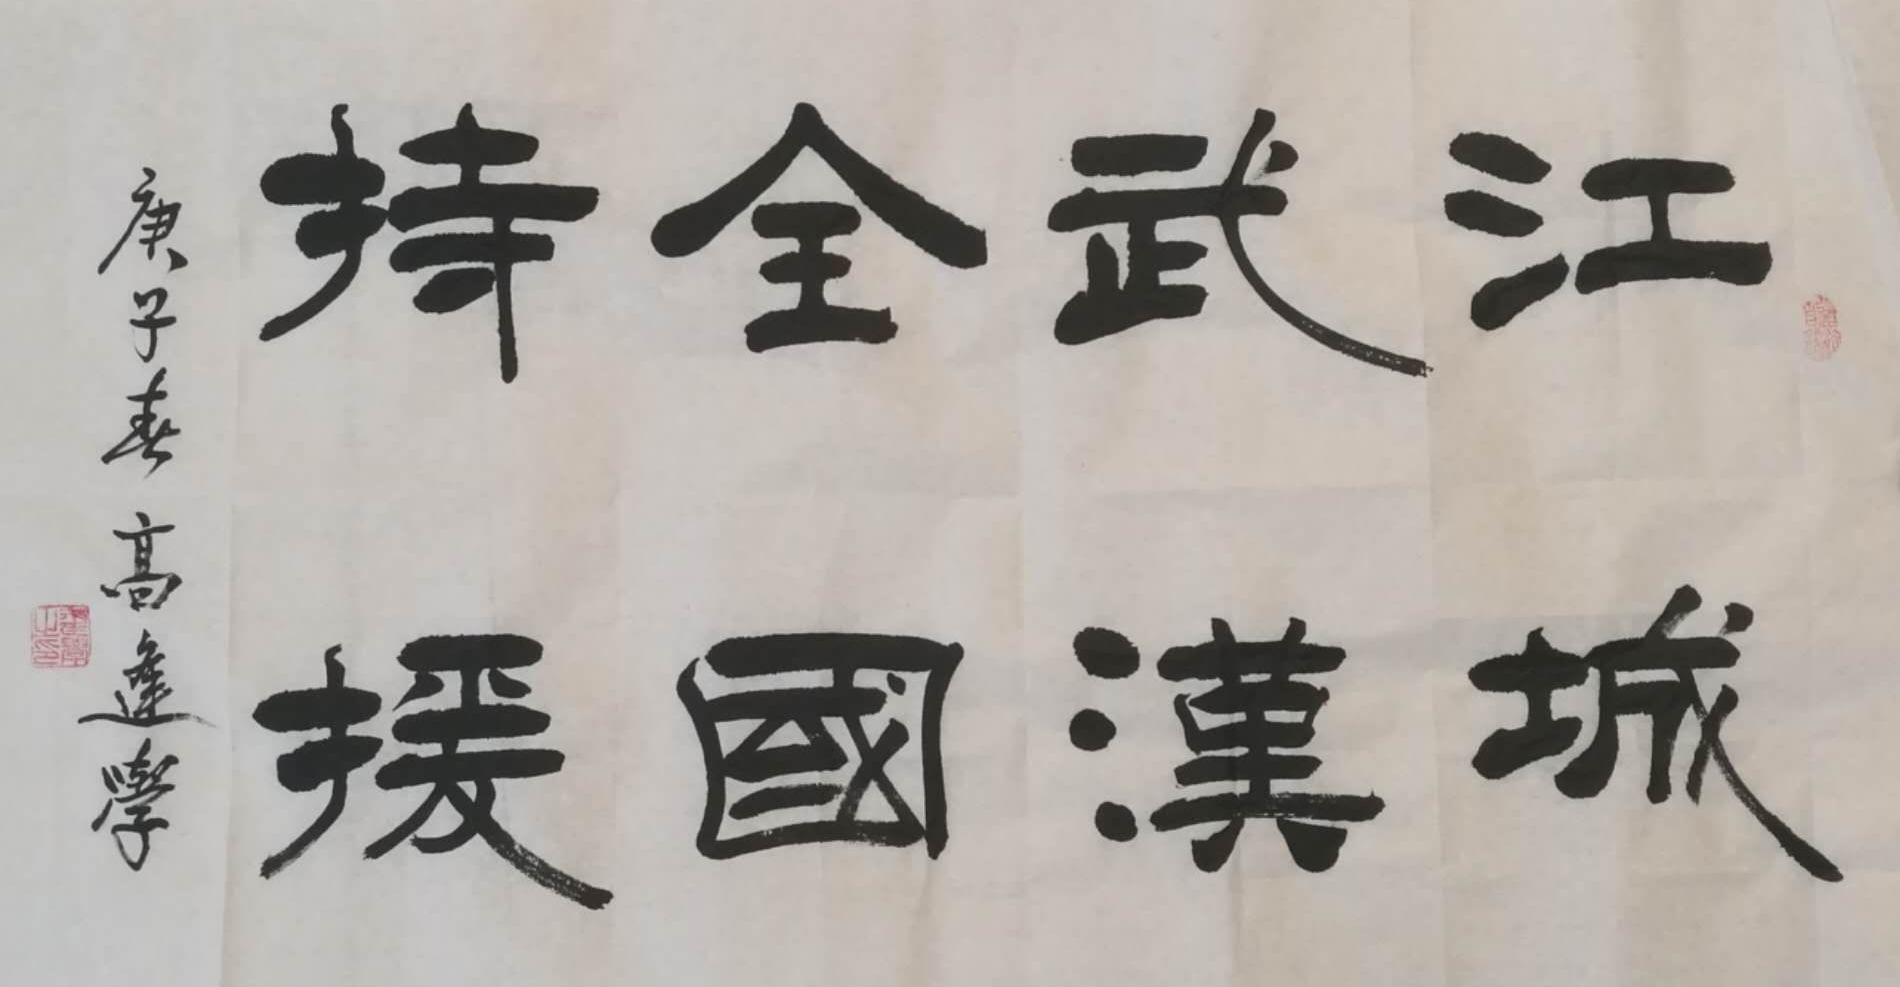 江城
武漢
全國
持援
庚子春 高 學